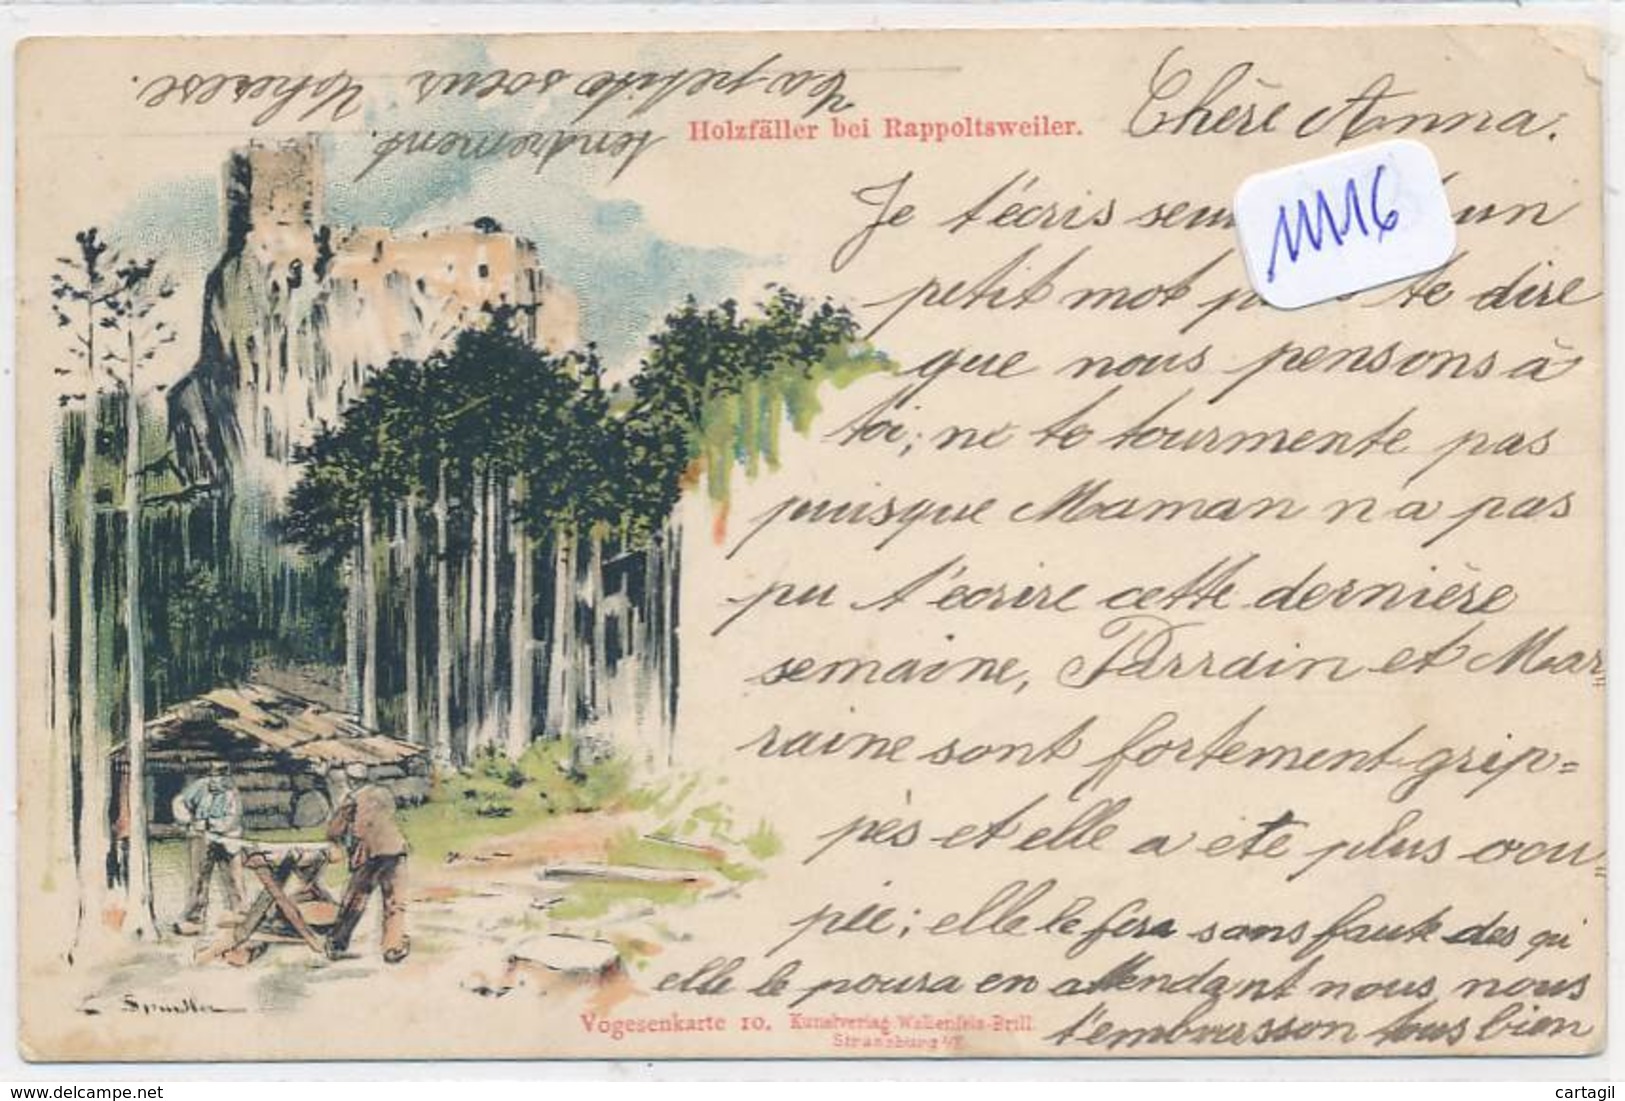 Holzfäller bei Rappoltsweiler.
Chère Anna.
Je t'écris un
petit mot te dire
que nous pensons à
toi; ne te tourmente pas
puisque Maman n a pas
pu t'écrire cette dernière
semaine, Parrain et Mar
raine sont fortement grip=
pés et elle a été plus occu
pée; elle le fera sans faute des qu
elle le poura en attendant nous nous
t'embrasson tous bien
tendrement.
Ta petite soeur Thérèse.
11116
C. Spindler
Vogesenkarte 10. Kunstverlag Walkenfels-Brill
Strassburg i/E.
cartagil